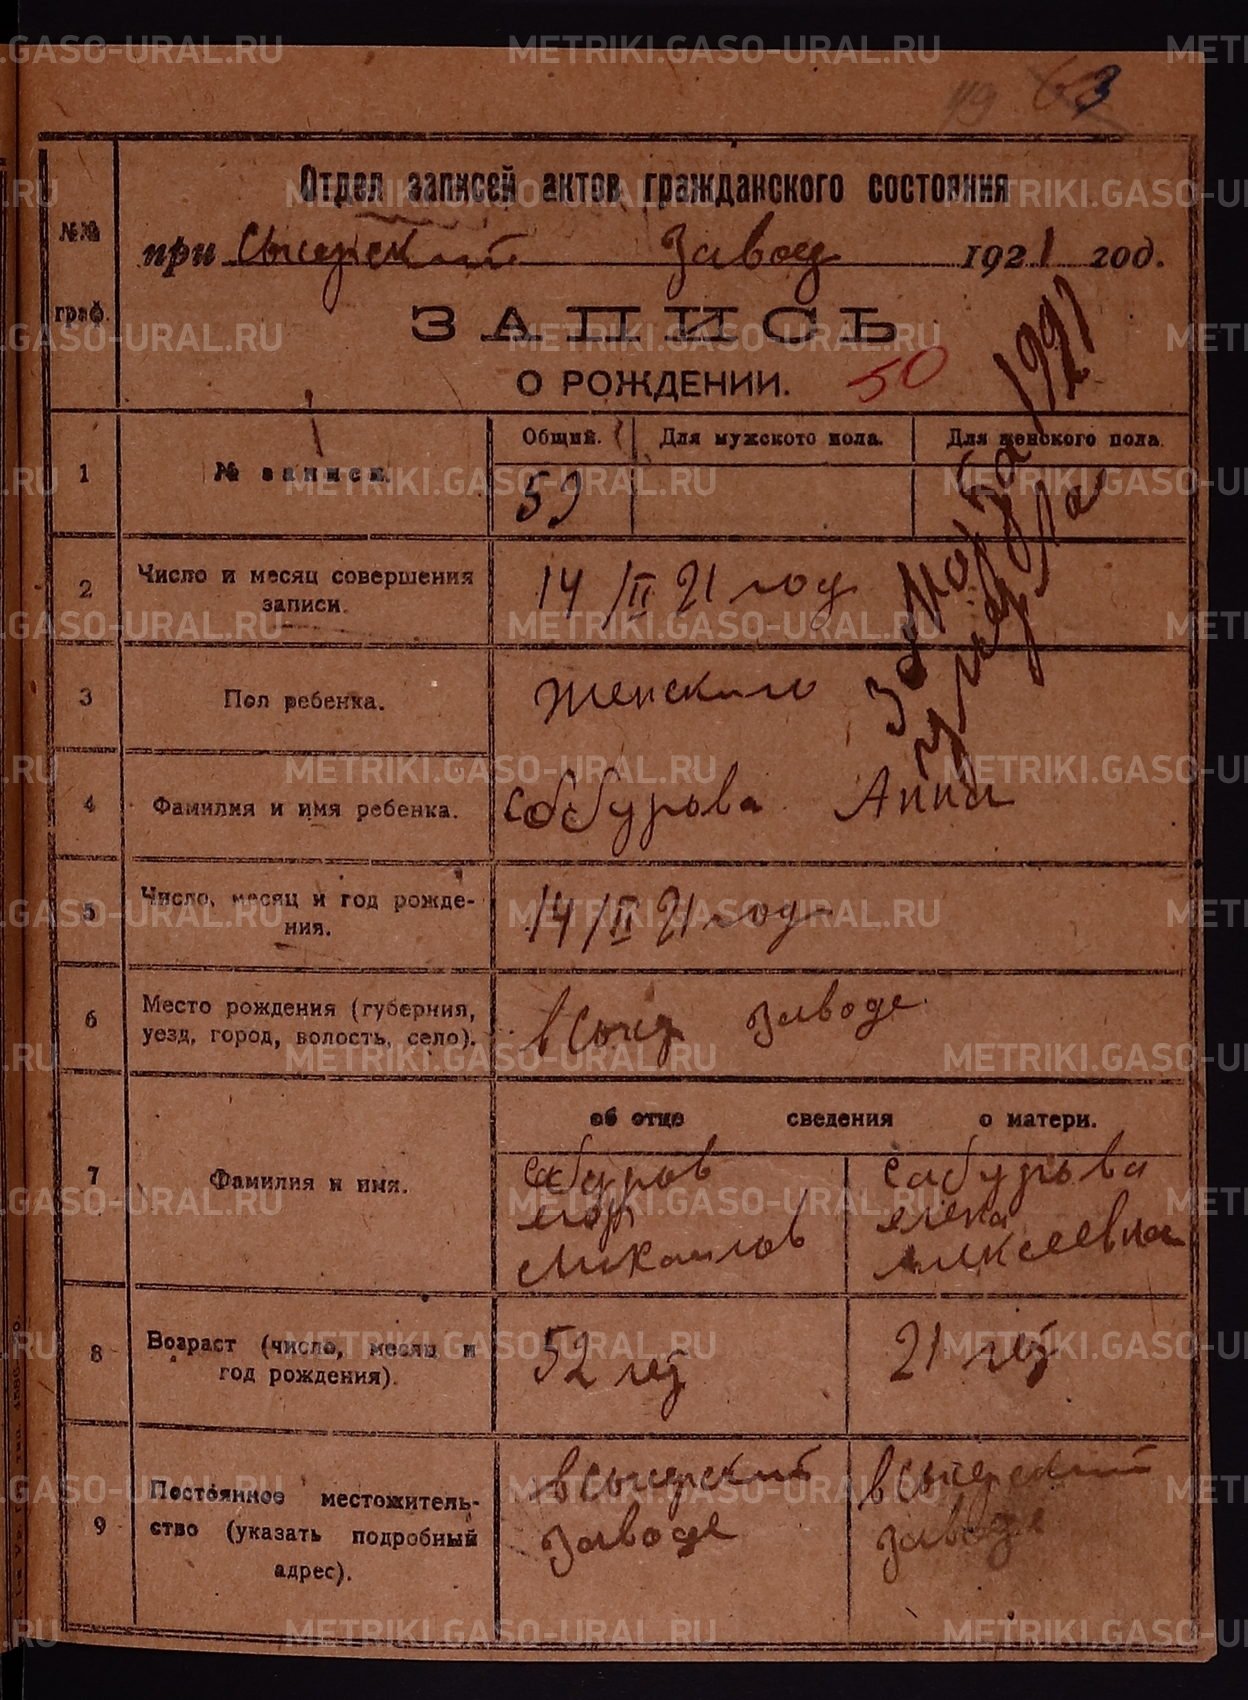 63
Отдел записей актов гражданского состояния
№№ граф.
при Сысерский Завод 1921 год.
ЗАПИСЬ
О РОЖДЕНИИ.
50
1921
1 № записи.
Общий. Для мужского пола. Для женского пола.
59
2 Число и месяц совершения
записи.
14/II 21 год
3 Пол ребенка.
женского
4 Фамилия и имя ребенка.
Анна
5 Число, месяц и год рожде-
ния.
14/II 21 год
6 Место рождения (губерния,
уезд, город, волость, село).
в Сысер заводе
об отце сведения о матери.
7 Фамилия и имя.
Сабуров
Егор
Михаилов
Сабурова
Елена
Алексеевна
8 Возраст (число, месяц и
год рождения).
52 лет
21 лет
9 Постоянное местожитель-
ство (указать подробный
адрес).
в Сысерский
заводе
в Сысерский
заводе
METRIKI.GASO-URAL.RU